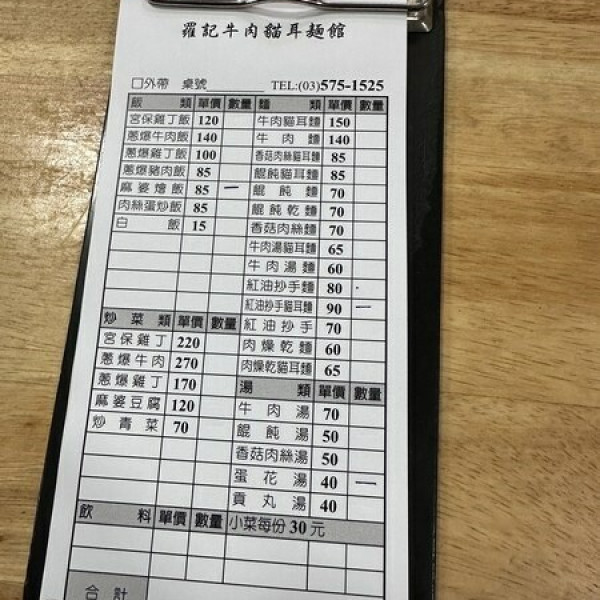 羅記牛肉貓耳麵館
□外帶 桌號 TEL:(03)575-1525
飯類 單價 數量 麵類 單價 數量
宮保雞丁飯 120 牛肉貓耳麵 150
蔥爆牛肉飯 140 牛肉麵 140
蔥爆雞丁飯 100 香菇肉絲貓耳麵 85
蔥爆豬肉飯 85 餛飩貓耳麵 85
麻婆燴飯 85 一 餛飩麵 70
肉絲蛋炒飯 85 餛飩乾麵 70
白飯 15 香菇肉絲麵 70
牛肉湯貓耳麵 65
牛肉湯麵 60
紅油抄手麵 80
紅油抄手貓耳麵 90 一
炒菜類 單價 數量 紅油抄手 70
宮保雞丁 220 肉燥乾麵 60
蔥爆牛肉 270 肉燥乾貓耳麵 65
蔥爆雞丁 170 湯類 單價 數量
麻婆豆腐 120 牛肉湯 70
炒青菜 70 餛飩湯 50
香菇肉絲湯 50
蛋花湯 40 一
貢丸湯 40
飲料 單價 數量 小菜每份30元
合計